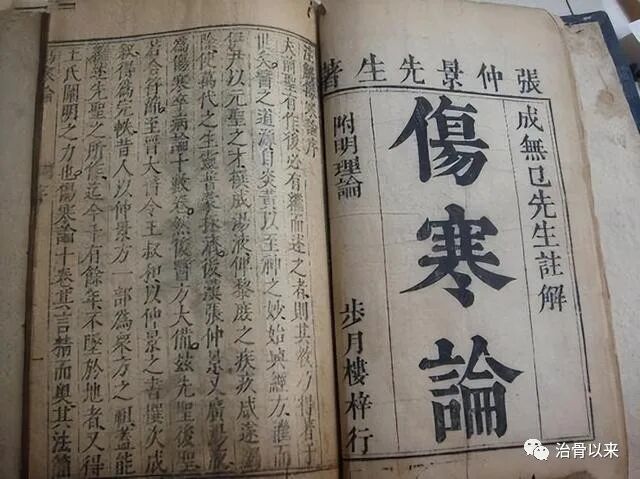 張仲景先生著
成無已先生註解
傷寒論
附明理論
步月樓梓行
註解傷寒論序
夫前聖有作後必有繼而述之者則其教乃得著于
世矣醫之道源自炎黃以至神之妙始興經方繼而
伊尹以元聖之才撰成湯液俾黎庶之疾疢咸遂蠲
除使萬代之生靈普蒙拯濟後漢張仲景又廣湯液
為傷寒卒病論十數卷然後醫方大備茲先聖後聖
若合符節至晉太醫令王叔和以仲景之書撰次成
敘得為完帙昔人以仲景方一部為眾方之祖蓋能
繼述先聖之所作迄今千有餘年不墜於地者又得
王氏闡明之力也傷寒論十卷其言精而奧其法簡
傷寒論
治骨以来